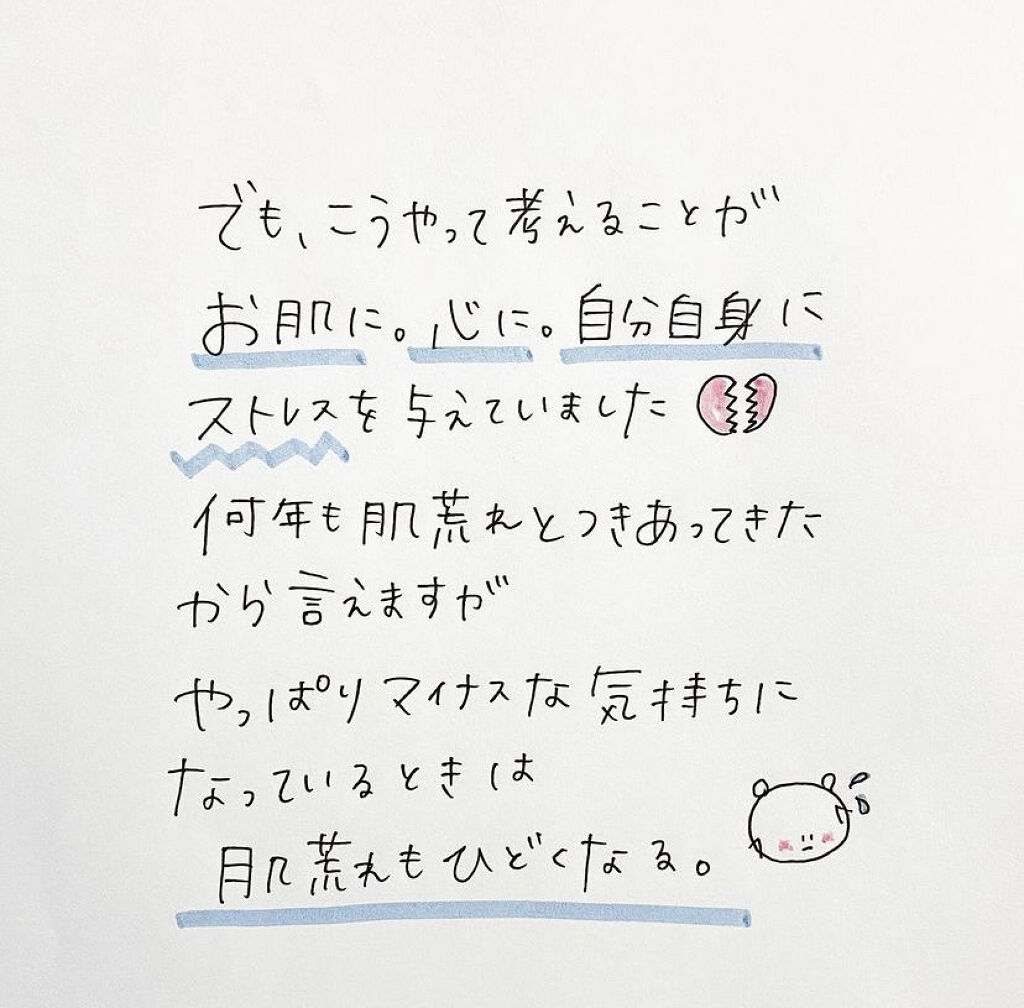 でも、こうやって考えることが
お肌に。心に。自分自身に
ストレスを与えていました
何年も肌荒れとつきあってきた
から言えますが
やっぱりマイナスな気持ちに
なっているときは
肌荒れもひどくなる。